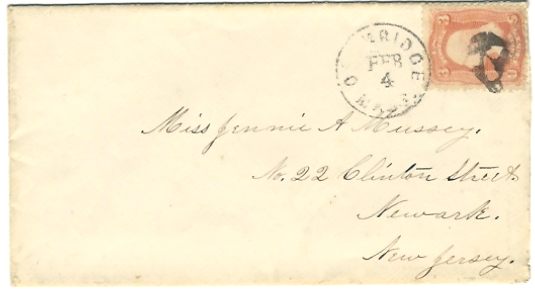 MBRIDGE
FEB
4
MASS
3 3
Miss Jennie A Mussey.
No. 22 Clinton Street
Newark.
New Jersey.